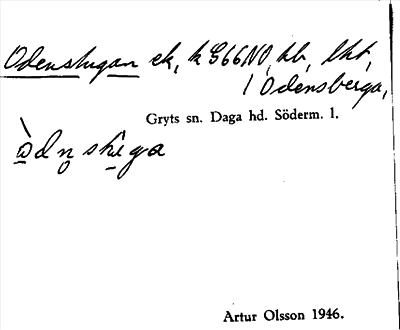 Odenstugan ek, k G66NO, hb, lht,
1 Odensberga,
Gryts sn. Daga hd. Söderm. l.
Artur Olsson 1946.